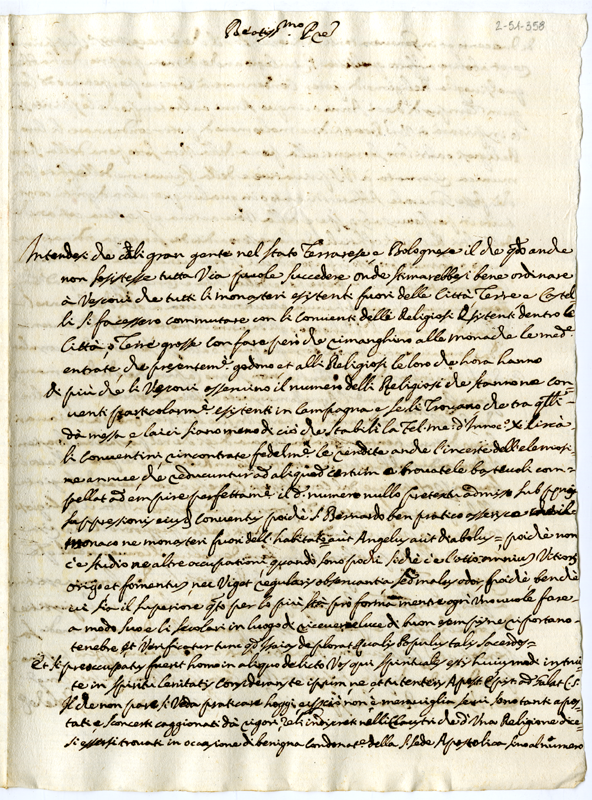 Beatiss.mo Pre
2-51-358
Intendesi che gran gente nel stato Ferrarese e Bolognese il che anche
non sosistesse tutta via puole succedere onde stimarebbesi bene ordinare
à Vescovi che tutti li monasteri esistenti fuori delle Città Terre e Castel
li si facessero commutare con li Conventi delli Religiosi esistenti dentro le
Città, o Terre grosse con fare però che rimanghino alle monache le med.e
entrate, che presentem.e godono et alli Religiosi le loro che hora hanno
di più che li Vescovi osservino il numero delli Religiosi che stanno ne con
venti particolarm.e esistenti in Campagna e se li Trovano che tra
dà messa e laici siano meno di ciò che stabilì la fel. me. d'Innoc.o X circà
li Conventini, rincontrate fedelm.e le rendite anche l'incerte dell'elemosi
ne annue, che reducuntur ad aliquod certum e trovatele bastevoli com
pellat ad empire perfettam.e il d.o numero nullo pretextu admisso sub
suppressionis eiusd. Conventus poiche S. Bernardo ben pratico
monaco ne monasteri fuori dell'habitato aut Angelus aut diabolus poiche non
c'è studio ne altre occupationi quando sono pochi si che è l'otio omnium Vitiorum
origo et fomentus, nec Viget regularis observantia sed malus odor fraiche benche
vi sia il superiore q.to per lo più stà pro forma mentre ogn'uno vuole fare
a modo suo e li secolari in luogo di ricevere luce di buon esempio ne riportano
tenebre et Verificatur tunc deplorat qualis Populus talis sacerdos
Et si preoccupatus fuerit homo in aliquo delicto Vos qui spirituales estis huiusmodi instrui
te in spiritu lenitatis considerans te ipsum ne et tu tenteris Apost. ad Galat. C. 6.
Il che non pare si Veda praticare hoggi e perciò non è meraviglia se vi sono tanti aposta
tati e sconcerti caggionati dà rigori, zeli indiscreti nelli Claustri che d'Una Religione dice
si essersi trovati in occasione di benigna condonat.e della S. Sede Apostolica sino al numero